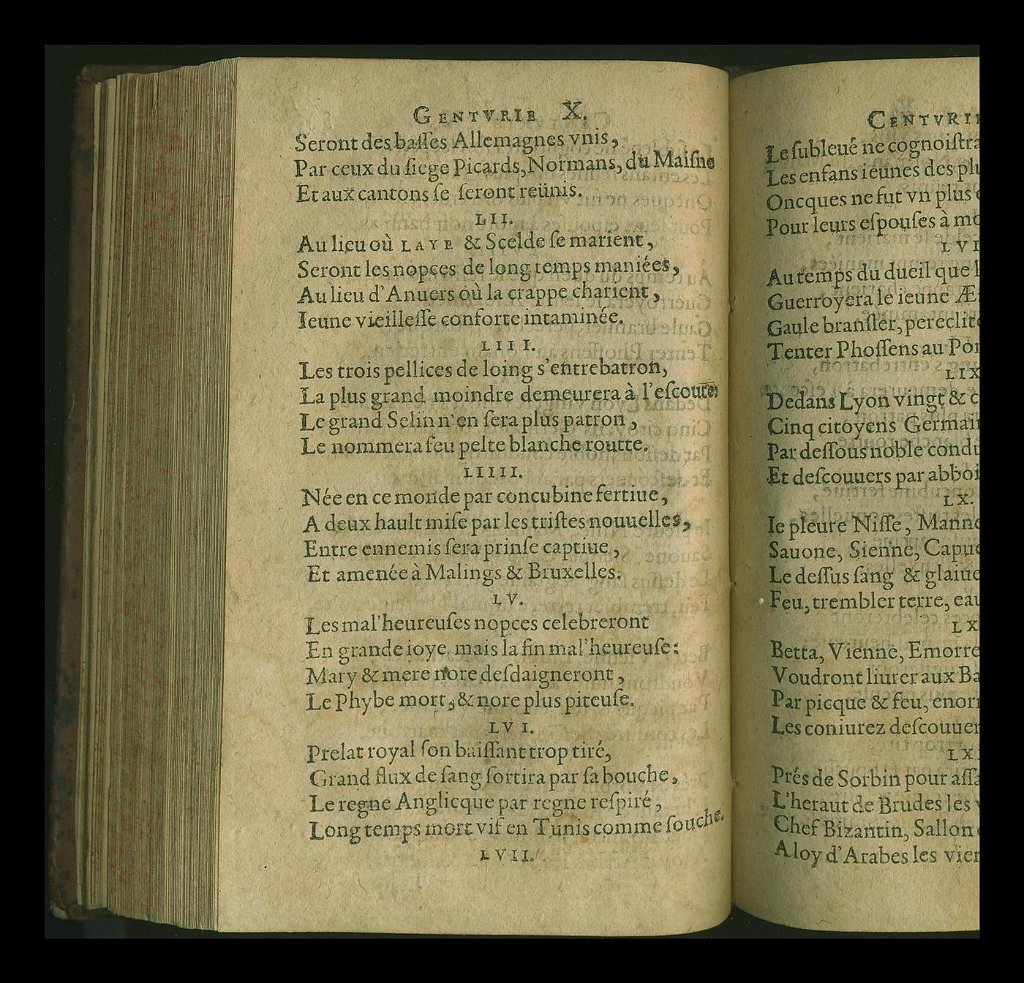 CENTVRIE X.
Seront des baſſes Allemagnes vnis,
Par ceux du ſiege Picards, Normans, du Maiſne
Et aux cantons ſe ſeront reünis.
LII.
Au lieu où LAYE & Scelde ſe marient,
Seront les nopces de long temps maniées,
Au lieu d'Anuers où la crappe charient,
Ieune vieilleſſe conforte intaminée.
LIII.
Les trois pellices de loing s'entrebatron,
La plus grand moindre demeurera à l'eſcoute:
Le grand Selin n'en ſera plus patron,
Le nommera feu pelte blanche routte.
LIIII.
Née en ce monde par concubine fertiue,
A deux hault miſe par les triſtes nouuelles,
Entre ennemis ſera prinſe captiue,
Et amenée à Malings & Bruxelles.
LV.
Les mal'heureuſes nopces celebreront
En grande ioye, mais la fin mal'heureuſe:
Mary & mere nore deſdaigneront,
Le Phybe mort, & nore plus piteuſe.
LVI.
Prelat royal ſon baiſſant trop tiré,
Grand flux de ſang ſortira par ſa bouche,
Le regne Anglicque par regne reſpiré,
Long temps mort vif en Tunis comme ſouche.
LVII.
CENTVRI
Le ſubleué ne cognoiſtra
Les enfans ieunes des pl
Oncques ne fut vn plus
Pour leurs eſpouſes à
LVI
Au temps du dueil que
Guerroyera le ieune
Gaule branſler, pereclit
Tenter Phoſſens au
LIX
Dedans Lyon vingt &
Cinq citoyens Germai
Par deſſous noble cond
Et deſcouuers par abboi
LX.
Ie pleure Niſſe, Mann
Sauone, Sienne, Capu
Le deſſus ſang & glaiue
Feu, trembler terre, eau
LX
Betta, Vienne, Emorre
Voudront liurer aux Ba
Par picque & feu, enor
Les coniurez deſcouuer
LX
Prés de Sorbin pour aſſa
L'heraut de Brudes les
Chef Bizantin, Sallon
Aloy d'Arabes les vien